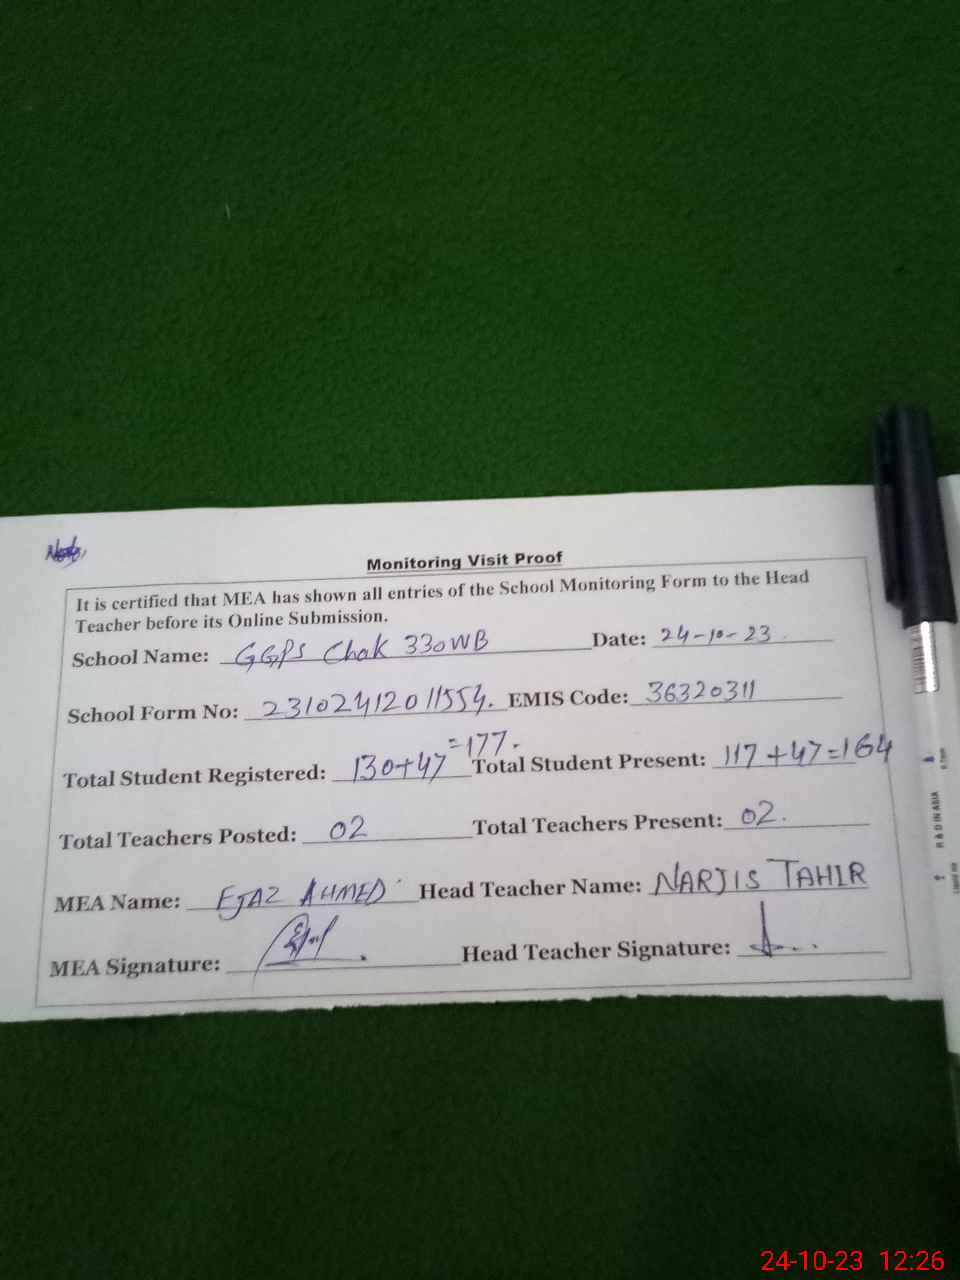 Monitoring Visit Proof
It is certified that MEA has shown all entries of the School Monitoring Form to the Head
Teacher before its Online Submission.
School Name: GGPS Chak 330WB Date: 24-10-23.
School Form No: 23102412011554. EMIS Code: 36320311
Total Student Registered: 130+47=177. Total Student Present: 117+47=164
Total Teachers Posted: 02 Total Teachers Present: 02.
MEA Name: EJAZ AHMED Head Teacher Name: NARJIS TAHIR
MEA Signature: Head Teacher Signature:
24-10-23 12:26